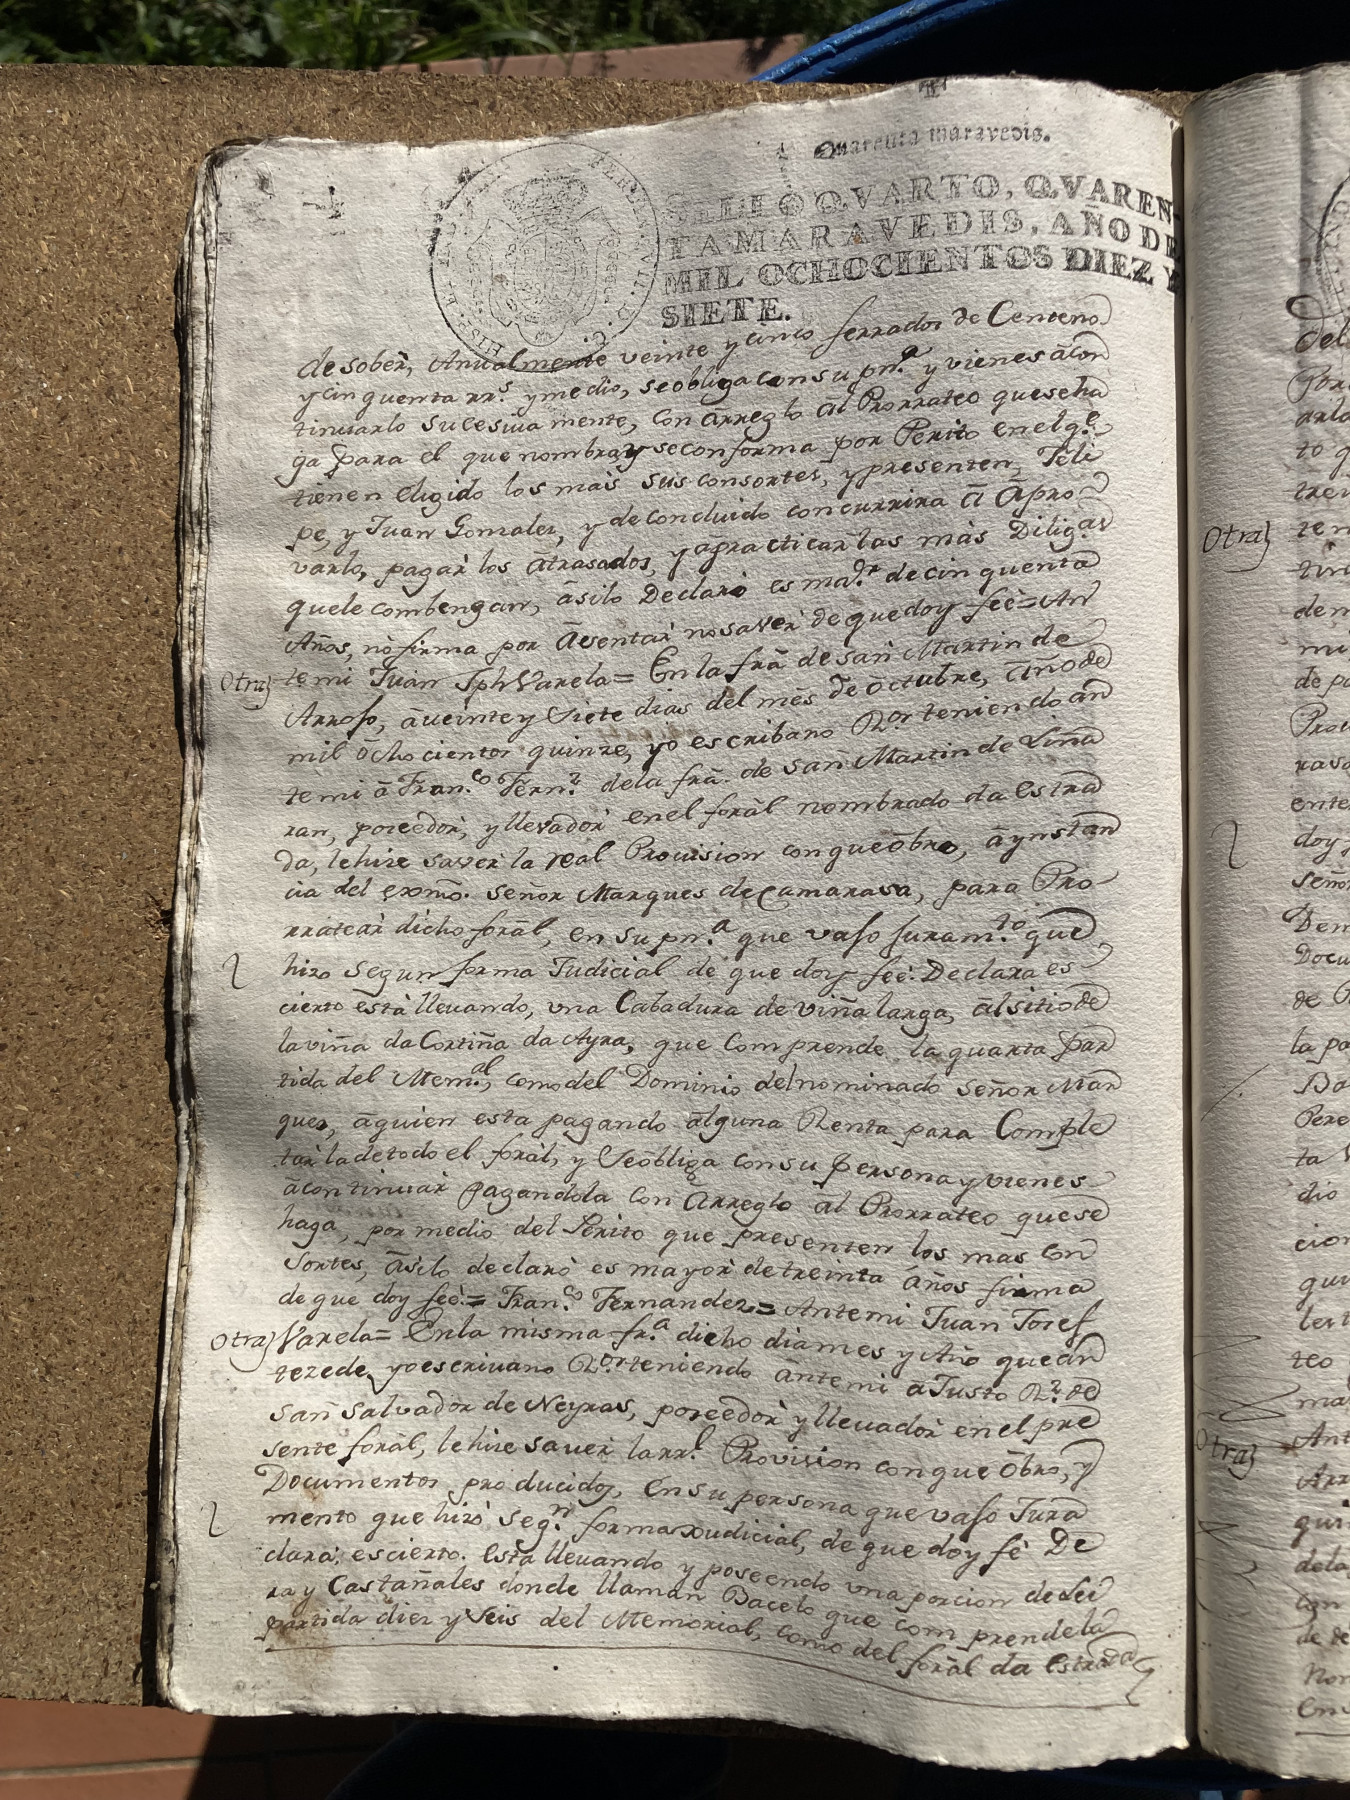 Quarenta maravedis.
SELLO QVARTO, QVAREN-
TA MARAVEDIS, AÑO DE
MIL OCHOCIENTOS DIEZ Y
SIETE.
de sober, Anualmente veinte y cinco ferrados de Centeno
y cinquenta rr.s y medio, se obliga con su pn.a y vienes à con
tinuarlo sucesiva mente, con àrreglo àl Prorrateo que se ha
ga para el que nombra y se conforma por Perito en el q.e
tienen eligido los mas sus consortes, y presenten, Feli
pe, y Juan Gonzalez, y de concluido concurrira à àpro
varlo, pagar los àtrasados, y a practicar las màs Dilig.as
que le combengan, àsi lo Declarò es ma.or de cinquenta
Años, nò firma por àsentar no saver de que doy feè = An
Otra
te mi Juan Jph Varela = En la frà de san Martin de
Arrojo, à veinte y Siete dias del mes de òctubre, àño de
mil òcho cientos quinze, yo escribano R.or teniendo àn
te mi à Fran.co Fern.z de la frà. de san Martin de Liña
ran, poseedor, y llevador en el foràl nombrado da Estra
da, le hize saver la real Provision con que òbro, à ynstan
cia del exmò. señor Marques de Camarasa, para Pro
rratear dicho foràl, en su pn.a que vajo juram.to que
hizo segun forma Judicial de que doy feè. Declara es
cierto està llevando, una Cabadura de viña larga, àl sitio de
la viña da Cortiña da Ayra, que Comprende la quarta par
tida del Mem.al, como del Dominio del nominado señor Mar
ques, à quien esta pagando àlguna Renta para Comple
tar la de todo el foràl, y se òbliga con su persona y vienes
à continuar pagandola con àrreglo àl Prorrateo que se
haga, por medio del Perito que presenten los mas Con
sortes, àsi lo declarò es mayor de treinta años firma
de que doy feè = Fran.co Fernandez = Ante mi Juan Josef
Otra
Varela = En la misma fr.a dicho dia mes y Año que àn
tezede, yo escrivano R.or teniendo ànte mi à Justo R.z de
san Salvador de Neyras, poseedor y llevador en el pre
sente foràl, le hize saver la rr.l Provision con que òbro, y
Documentos producidos, en su persona que vajo Jura
mento que hizò seg.n forma xudicial, de que doy fè De
clara, es cierto. està llevando y poseendo una porcion de Lei
ra y Castañales donde llaman Bacelo que comprende la
partida diez y seis del Memorial, como del foràl da Estrada
Otra
Otra